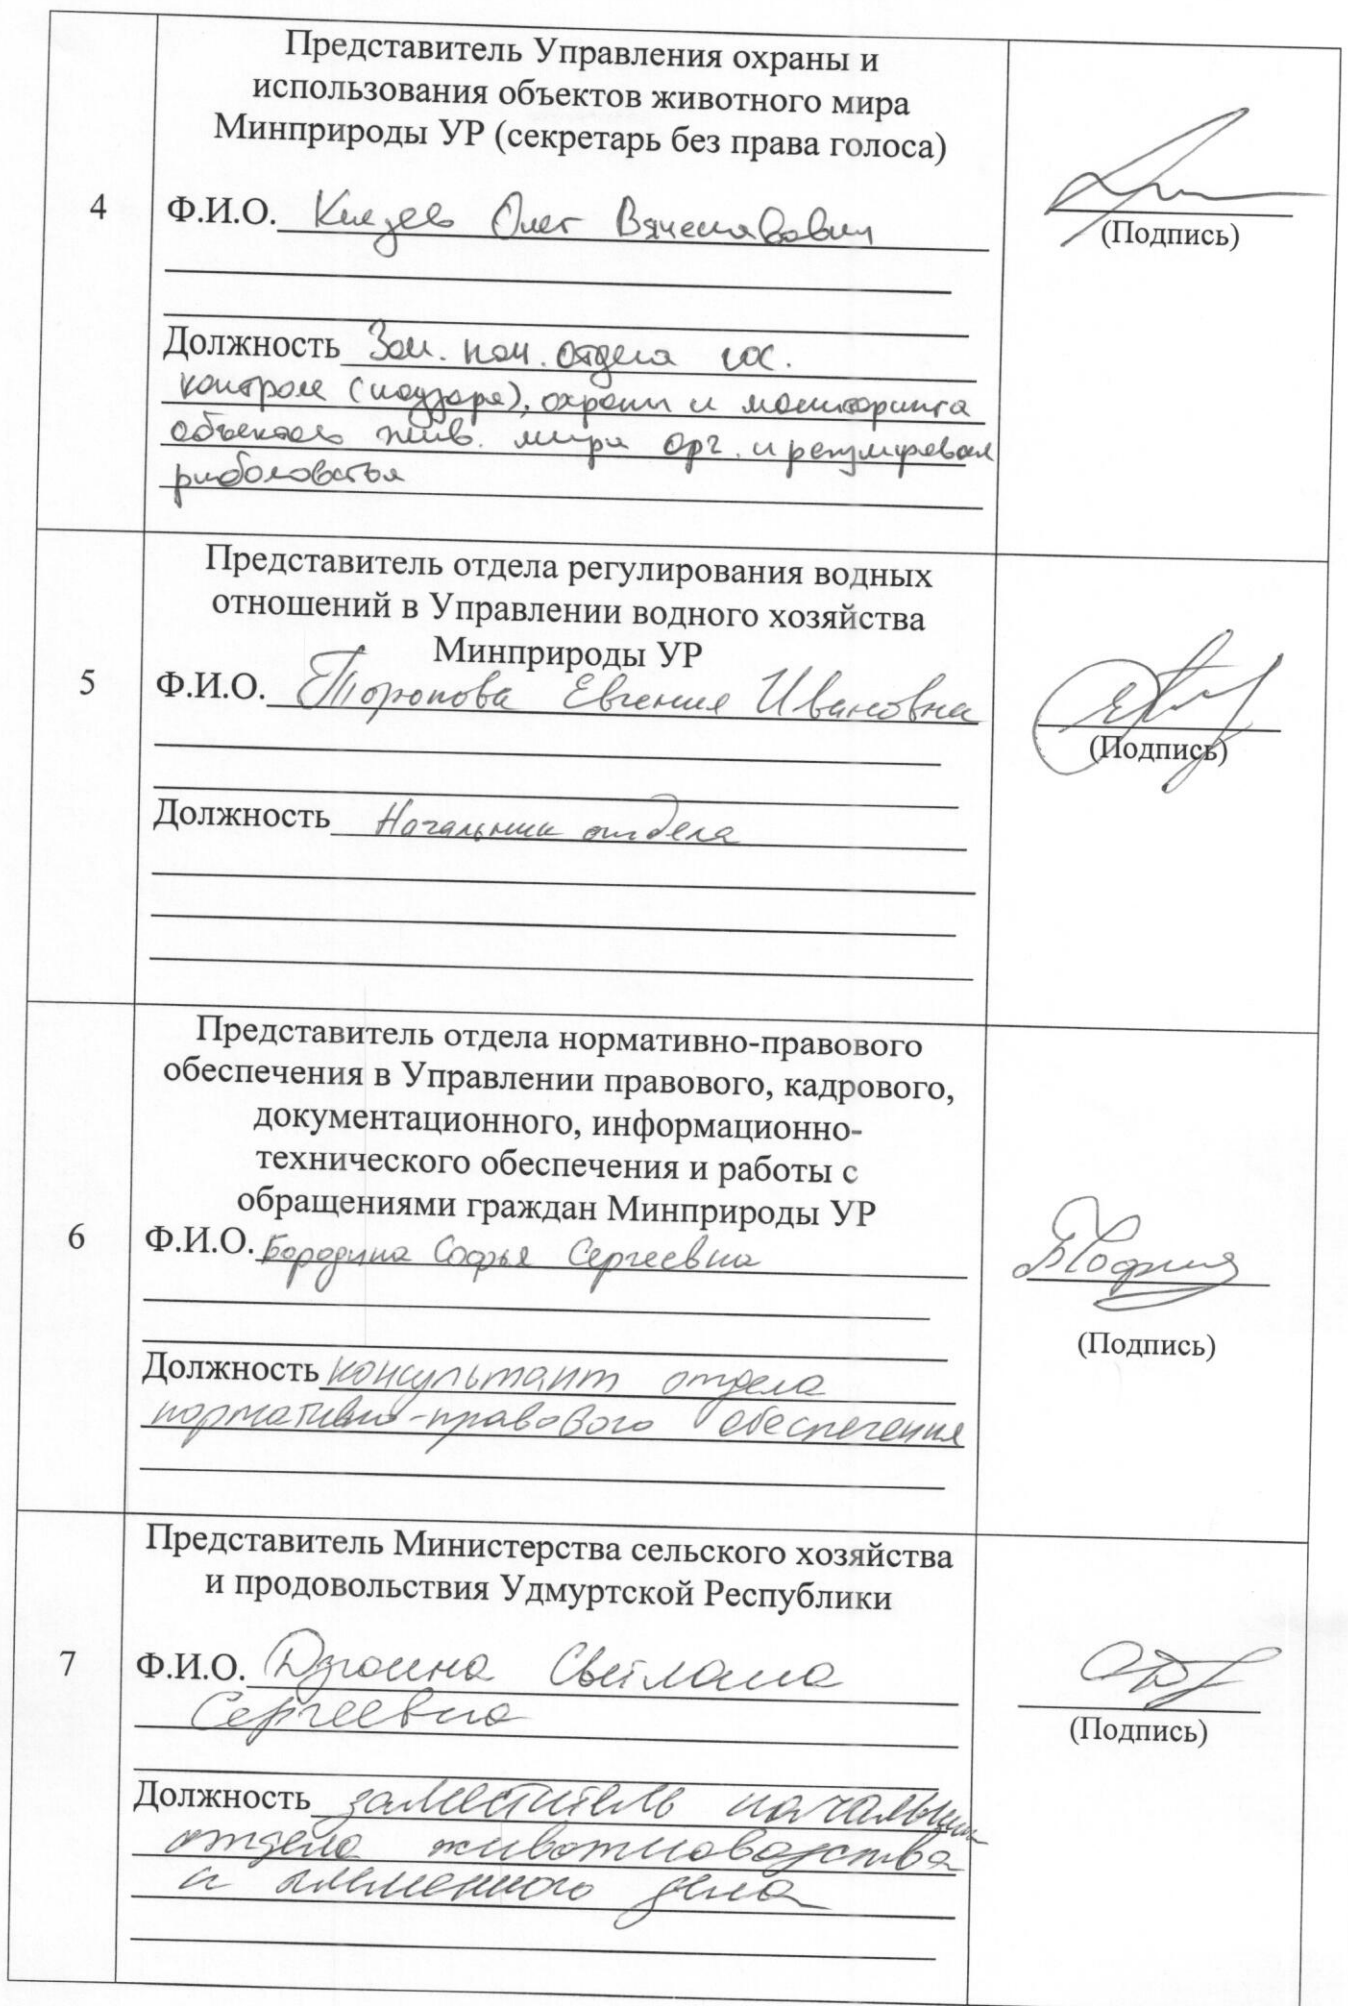 Представитель Управления охраны и
использования объектов животного мира
Минприроды УР (секретарь без права голоса)
4
Ф.И.О. Князев Олег Вячеславович
(Подпись)
Должность Зам. нач. отдела гос.
контроля (надзора), охраны и мониторинга
объектов жив. мира орг. и регулирован
рыболовства
Представитель отдела регулирования водных
отношений в Управлении водного хозяйства
Минприроды УР
5
Ф.И.О. Торопова Евгения Ивановна
(Подпись)
Должность Начальник отдела
Представитель отдела нормативно-правового
обеспечения в Управлении правового, кадрового,
документационного, информационно-
технического обеспечения и работы с
обращениями граждан Минприроды УР
6
Ф.И.О. Бородина Софья Сергеевна
(Подпись)
Должность консультант отдела
нормативно-правового обеспечения
Представитель Министерства сельского хозяйства
и продовольствия Удмуртской Республики
7
Ф.И.О. Светлана
Сергеевна
(Подпись)
Должность заместитель начальника
отдела животноводства
и племенного дела